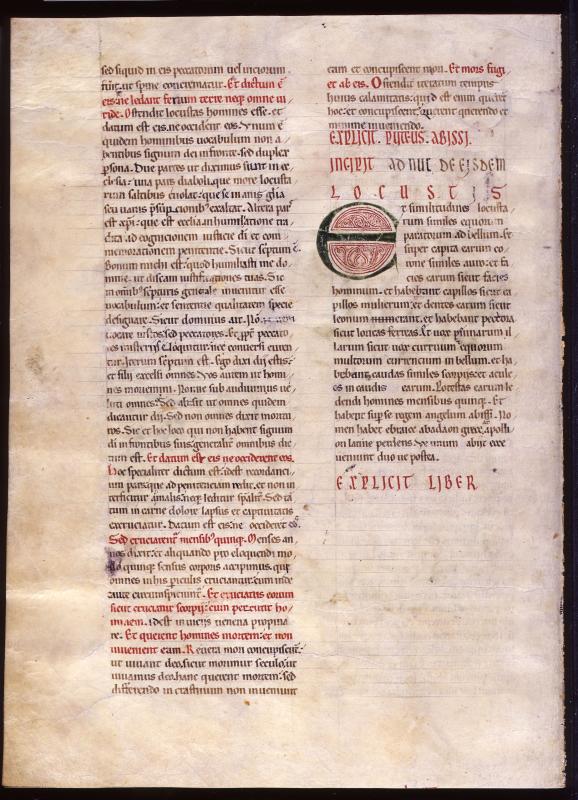 sed siquid in eis peccatorum uel uiciorum
fuerit ut spine concremetur. Et dictum ē
eis: ne ledant fenum terre neq; omne ui
ride. Ostendit locustas homines esse. et
datum est eis. ne occident eos. Vnum ē
quidem hominibus uocabulum non a
bentibus signum dei in fronte. sed duplex
ꝑsona. Due partes ut diximus sunt in ec
clesia. una pars diaboli. que more locusta
rum saltibus euolat. que se in anis gl̄ia
seu uanis exaltat. Altera pars
est xp̄i. que est ecclesia in humilatione tra
dita ad cognicionem iusticie di et com
memorationem penitentie. Sicut septum ē.
Bonum michi est. quod humiliasti me do
mine. ut discam iustificationes tuas. Sic
in omib; scpturis generale inuenitur esse
uocabulum. et sententie qualitatem specie
designare. Sicut dominus ait. Nō
uocare iustos sed peccatores. Et
loquitur. nec conuersi conuer
tur. Iterum septum est. Ego dixi dii estis.
et filii excelsi omnes. Vos autem ut homi
nes moriemini. Non ne sub audiuimus ue
luti omnes. Sed absit ut omnes quidem
dicantur dii. Sed non omnes dixit morten
ros. Sic et hoc loco qui non habent signum
di in frontibus suis. generalit̄ omnibus dic
tum est. Et datum est eis ne occiderent eos.
Hoc specialiter dictum est. idest recordanci
um pars que ad penitenciam rediit. et non in
terficitur animalis. neq; leditur spalit̄. Sed tā
tum in carne dolore lapsus et captiuitatis
excruciatur. Datum est eis. ne occiderent eos.
Sed cruciarent mensib; quinq;. Menses an
nos dixit. et aliquando pro eloquendi mo
do quinq; sensus corporis accipimus. quia
omnes in his piculis cruciantur. cum inde
sinunt circumspiciunt. Et cruciatus eorum
sicut cruciatus scorpii. cum percutit ho
minem. idest in uiciis uenena propina
re. Et querent homines mortem. et non
inuenient eam. Reuera mori concupiscent.
ut uiuant deo. sicut moriuntur seculo. ut
uiuamus deo. hanc querent mortem. sed
differendo in crastinum non inueniunt
eam et concupiscent mori. Et mors fugi
et ab eis. Ostendit ueritatem temporis
huius calamitatis. quid est enim querent
hoc. et concupiscent. querent querendo et
minime inueniendo.
EXPLICIT. PUTEUS. ABISSI.
INCIPIT AD NUT DE EISDEM
LOCUSTIS
Et similitudines locusta
rum similes equorum
paratorum ad bellum. Et
super capita earum co
rone similes auro. et fa
cies earum sicut facies
hominum. et habebant capillos sicut ca
pillos mulierum. et dentes earum sicut
leonum numerant. et habebant pectora
sicut loricas ferreas. Et uox pennarum il
larum sicut uox curruum equorum
multorum currencium in bellum. et ha
bebant caudas similes scorpiis. et acule
os in caudis earum. Potestas earum le
dendi homines mensibus quinq;. Et
habent sup se regem angelum abissi. No
men habet ebraice abadaon grece apolli
on latine perdens. Ve unum abiit ecce
ueniunt duo ue postea.
EXPLICIT LIBER